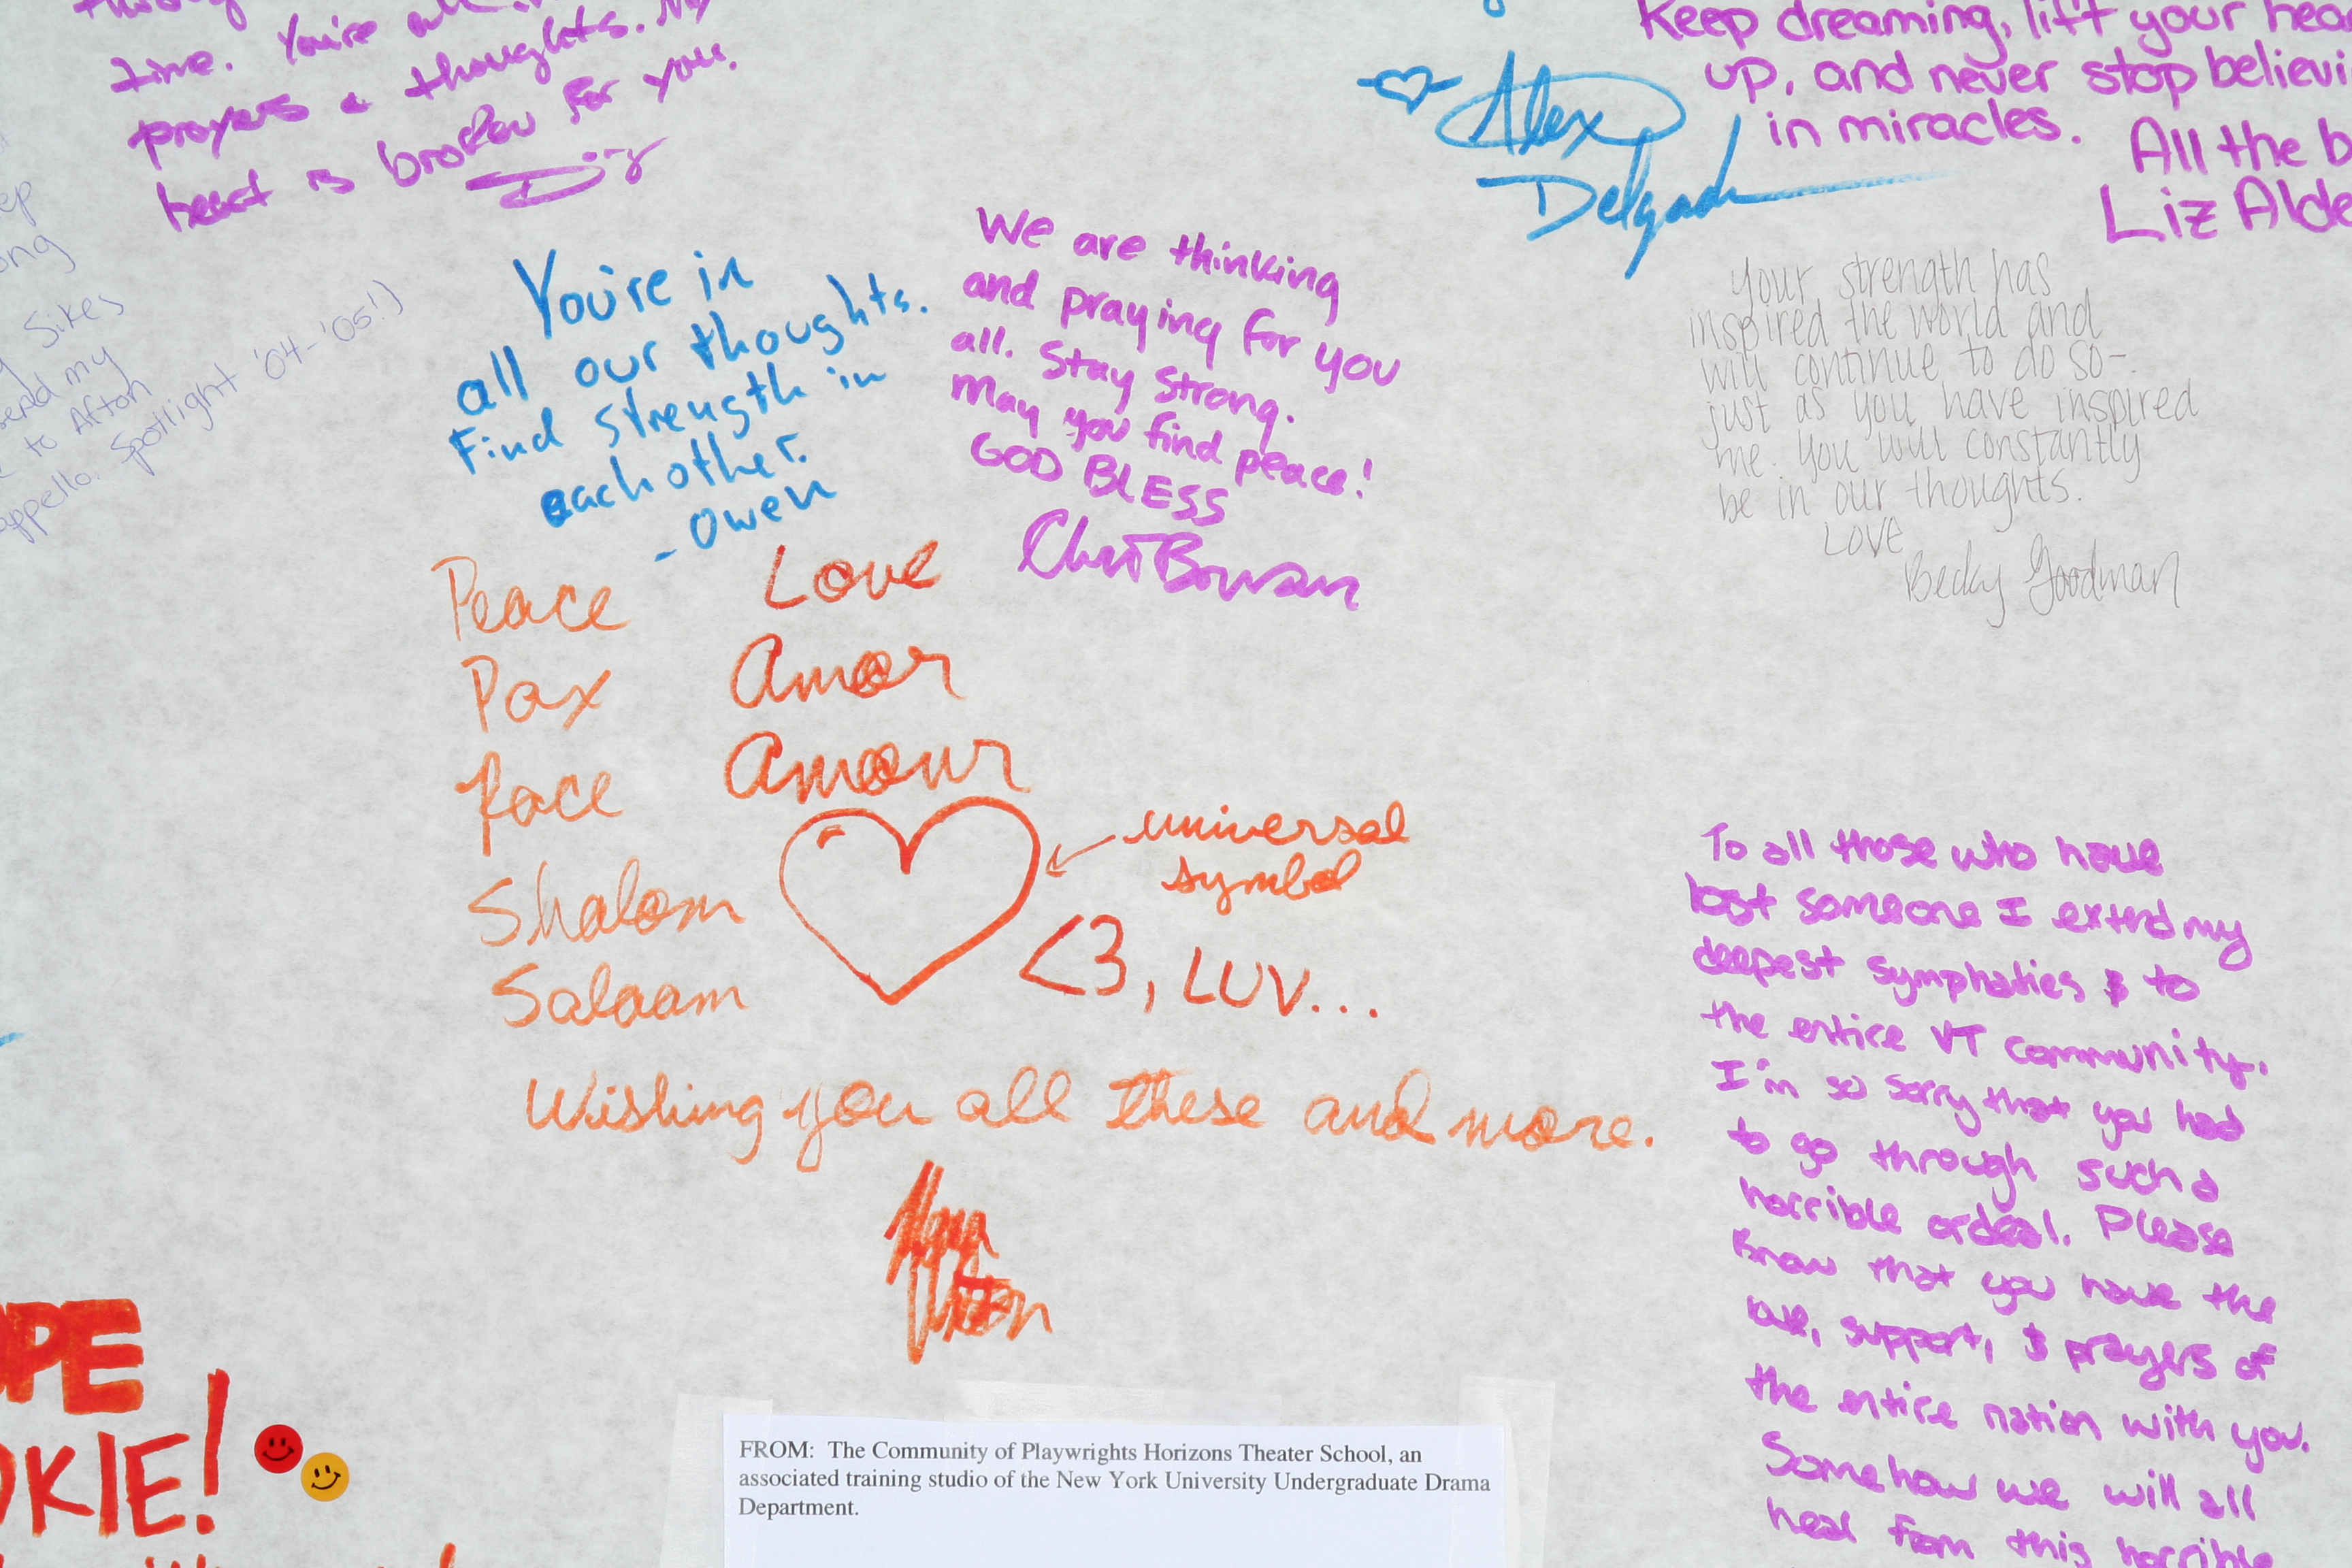 time. You're all in
prayers & thoughts. My
heart is broken for you.
Alex
Delgado
Keep dreaming, lift your hea
up, and never stop believi
in miracles.
All the b
Liz Alde
ep
ong
Sikes
send my
to Afton
appello. Spotlight '04-'05!)
You're in
all our thoughts.
Find strength in
each other.
- Owen
We are thinking
and praying for you
all. Stay Strong.
May you find peace!
GOD BLESS
Your strength has
inspired the world and
will continue to do so-
just as you have inspired
me. You will constantly
be in our thoughts.
LOVE
Becky Goodman
Peace Love
Pax Amor
Pace Amour
Shalom
Salaam
universal
symbol
<3, LUV...
Wishing you all these and more.
To all those who have
lost someone I extend my
deepest symphaties & to
the entire VT community.
I'm so sorry that you had
to go through such a
horrible ordeal. Please
know that you have the
love, support, & prayers of
the entire nation with you.
Somehow we will all
heal from this horrible
OPE
OKIE!
FROM: The Community of Playwrights Horizons Theater School, an
associated training studio of the New York University Undergraduate Drama
Department.